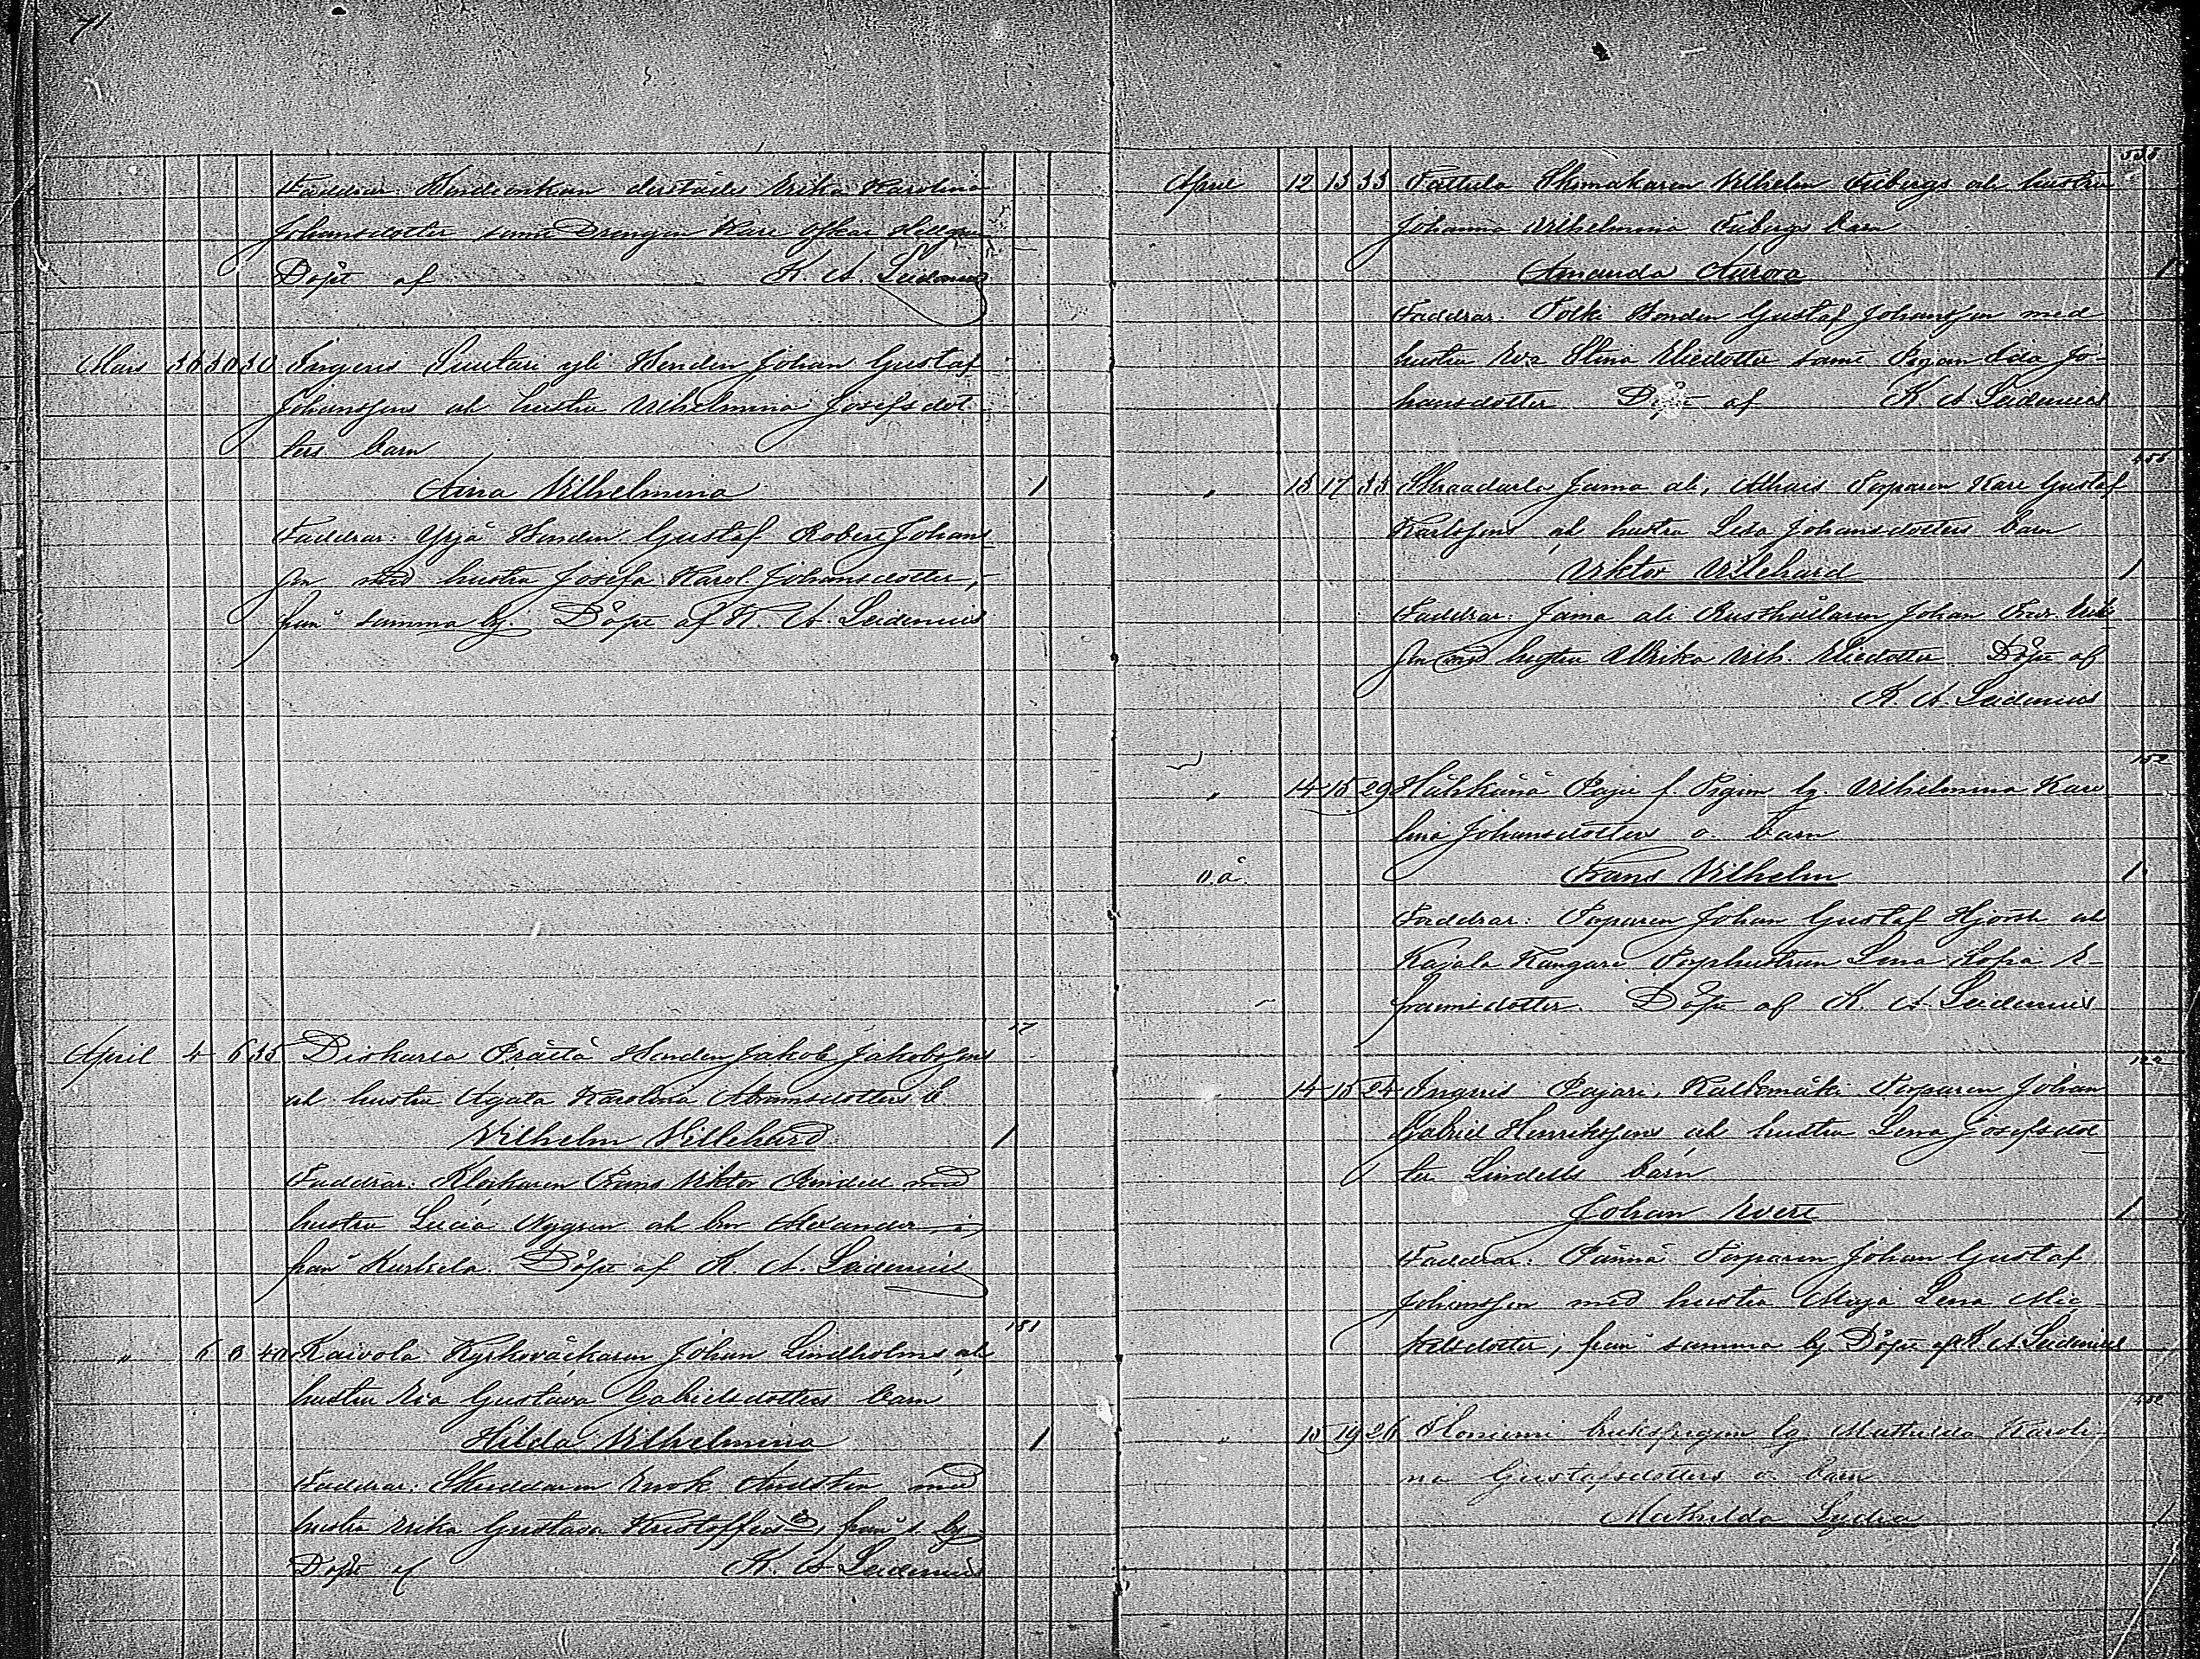 71
Faddrar: Bondeenkan derstädes Erika Karolina
Johansdotter samt Drengen Karl Oskar Hellgren
Döpt af K. A. Leidenius
Mars 30 30 Ingeris Suutari yli Bonden Johan Gustaf
Johanssons och hustru Vilhelmina Josefsdot-
ters barn
Aina Vilhelmina 1
Faddrar: Yrjä Bonden Gustaf Robert Johans-
son med hustru Josefa Karol. Johansdotter,
från samma by. Döpt af K. A. Leidenius
17
April 4 6 35 Präetä Bonden Jakob Jakobssons
och hustru Agata Karolina Abramsdotters b.
Vilhelm Villehard 1
Faddrar: Klockaren Frans Viktor med
hustru Lucia Nygren och Alexander
från Kurkela. Döpt af K. A. Leidenius
181
" 6 8 40 Kaivola Kyrkoväktaren Johan Lindholms och
hustru Eva Gustava Gabrielsdotters barn
Hilda Vilhelmina 1
Faddrar: Skräddaren Enok med
hustru Erika Gustava Kristoffersdr, från s. by
Döpt af K. A. Leidenius
April 12 13 33 Tattula Skomakaren Vilhelm Fribergs och hustru
Johanna Vilhelmina Fribergs barn
Amanda Aurora 1
Faddrar: Tolki Bonden Gustaf Johansson med
hustru Eva Stina Eliedotter samt Pigan Ida Jo-
hansdotter Döpt af K. A. Leidenius
" 15 17 33 Jama ali, Torparen Karl Gustaf
Karlssons och hustru Lisa Johansdotters barn
Viktor Villehard 1
Faddrar: Jama ali Rusthållaren Johan Fredr. Erik-
son med hustru Ulrika Vilh. Eliedotter Döpt af
K. A. Leidenius
152
" 14 15 29 Paju f. Pigan lg. Vilhelmina Karo-
lina Johansdotters o. barn
o.ä. Frans Vilhelm 1
Faddrar: Torparen Johan Gustaf Hjorth och
Kajala Kangari Torphustrun Lena Sofia E-
framsdotter. Döpt af K. A. Leidenius
122
" 14 15 24 Ingeris Pajari, Kaltomäki Torparen Johan
Gabriel Henrikssons och hustru Lena Josefsdot-
ter Lindells barn
Johan Evert 1
Faddrar: Torparen Johan Gustaf
Johansson med hustru Maja Lena Mic-
kelsdotter, från samma by. Döpt af K. A. Leidenius
452
" 15 19 26 Bruks pigan lg. Mathilda Karoli-
na Gustafsdotters o. barn
Mathilda Lydia 1